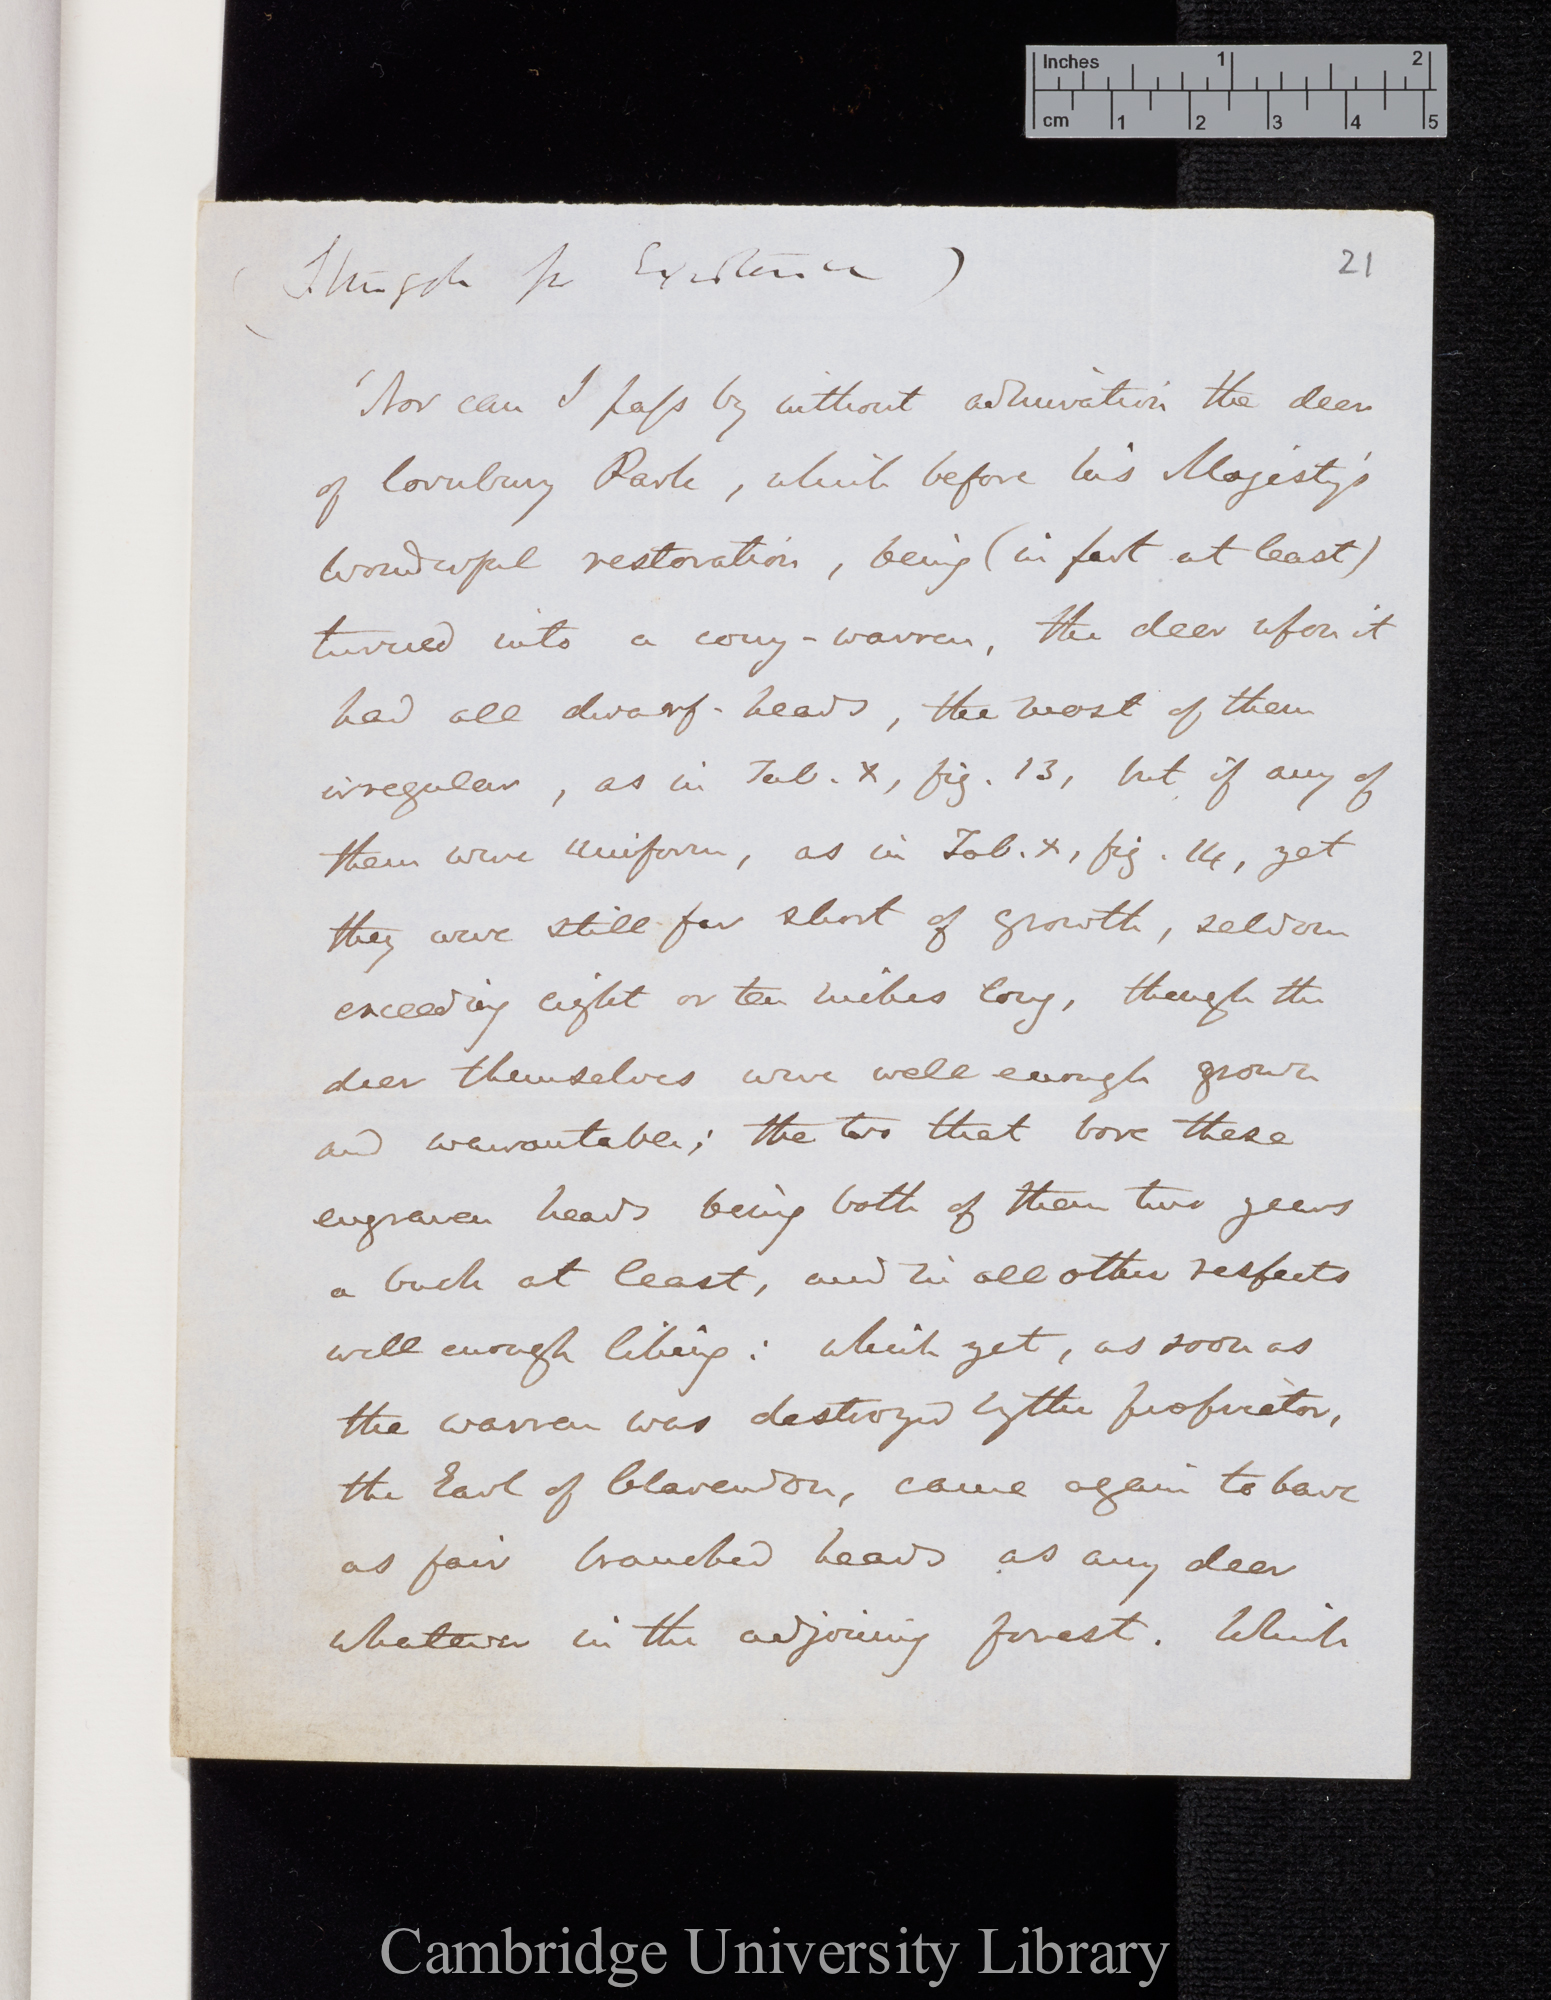 Inches 1 2
cm 1 2 3 4 5
(Struggle for Existence)
21
'Nor can I pass by without admiration the deer
of Cornbury Park, which before his Majesty's
wonderful restoration, being (in part at least)
turned into a cony-warren, the deer upon it
had all dwarf-heads, the most of them
irregular, as in Tab. X, fig. 13, but if any of
them were uniform, as in Tab. X, fig. 14, yet
they were still far short of growth, seldom
exceeding eight or ten inches long, though the
deer themselves were well enough grown
and warrantable; the two that bore these
engraven heads being both of them two years
a buck at least, and in all other respects
well enough liking: which yet, as soon as
the warren was destroyed by the proprietor,
the Earl of Clarendon, came again to have
as fair branched heads as any deer
whatever in the adjoining forest. Which
Cambridge University Library